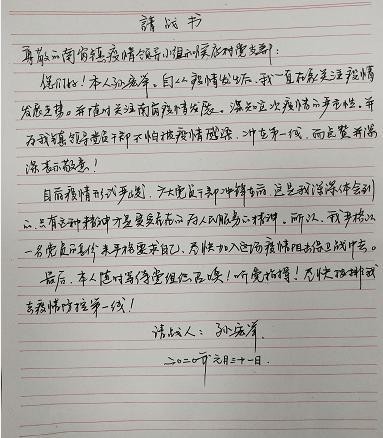 請战书
尊敬的南宿镇疫情领导小组和侯庄村党支部:
您们好!本人孙宏洋。自从疫情发生后,我一直在关注疫情
发展态势。并随时关注南宿疫情发展。深知这次疫情的严重性。并
为我镇领导党员干部不怕被疫情感染,冲在第一线,而点赞并深
深表示敬意!
目前疫情形式严峻,广大党员干部冲锋在前,这是我深深体会到
的,只有这种精神才是真实存在的为人民服务的精神。所以,我严格以
一名党员的身份来严格要求自己,尽快加入这场疫情阻击保卫战中去。
最后,本人随时等待党组织召唤!听党指挥!尽快安排我
去疫情防控第一线!
请战人:孙宏洋
二〇二〇年元月三十一日.